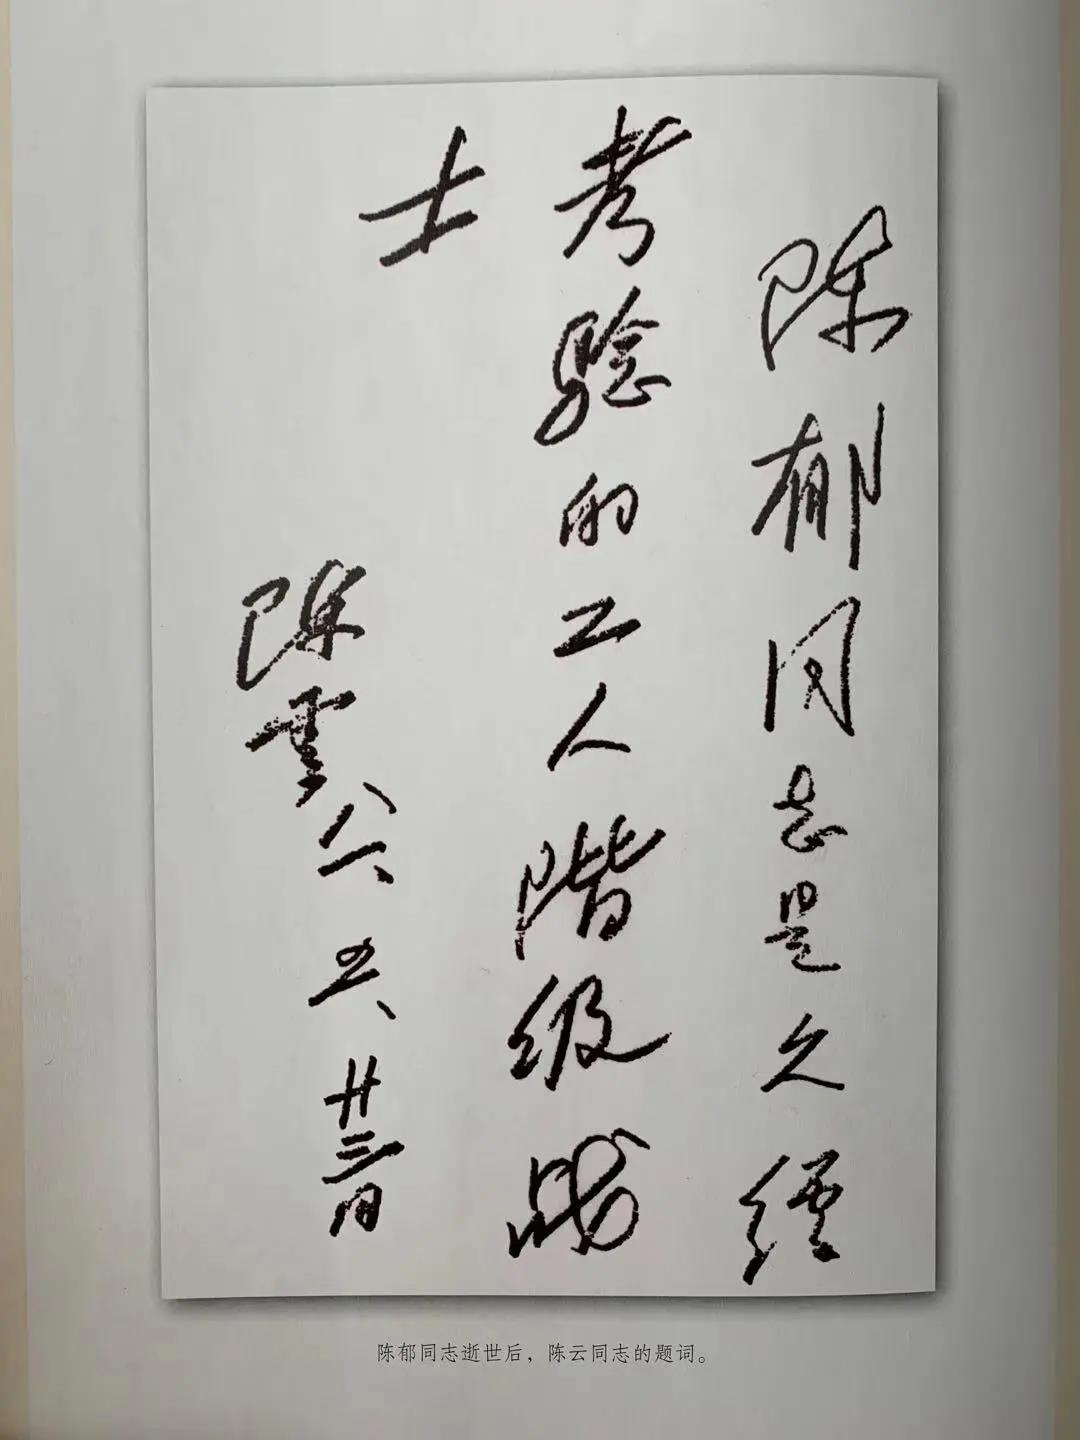 陈郁同志是久经
考验的工人阶级战
士
陈雲 八一、五、廿三日
陈郁同志逝世后，陈云同志的题词。